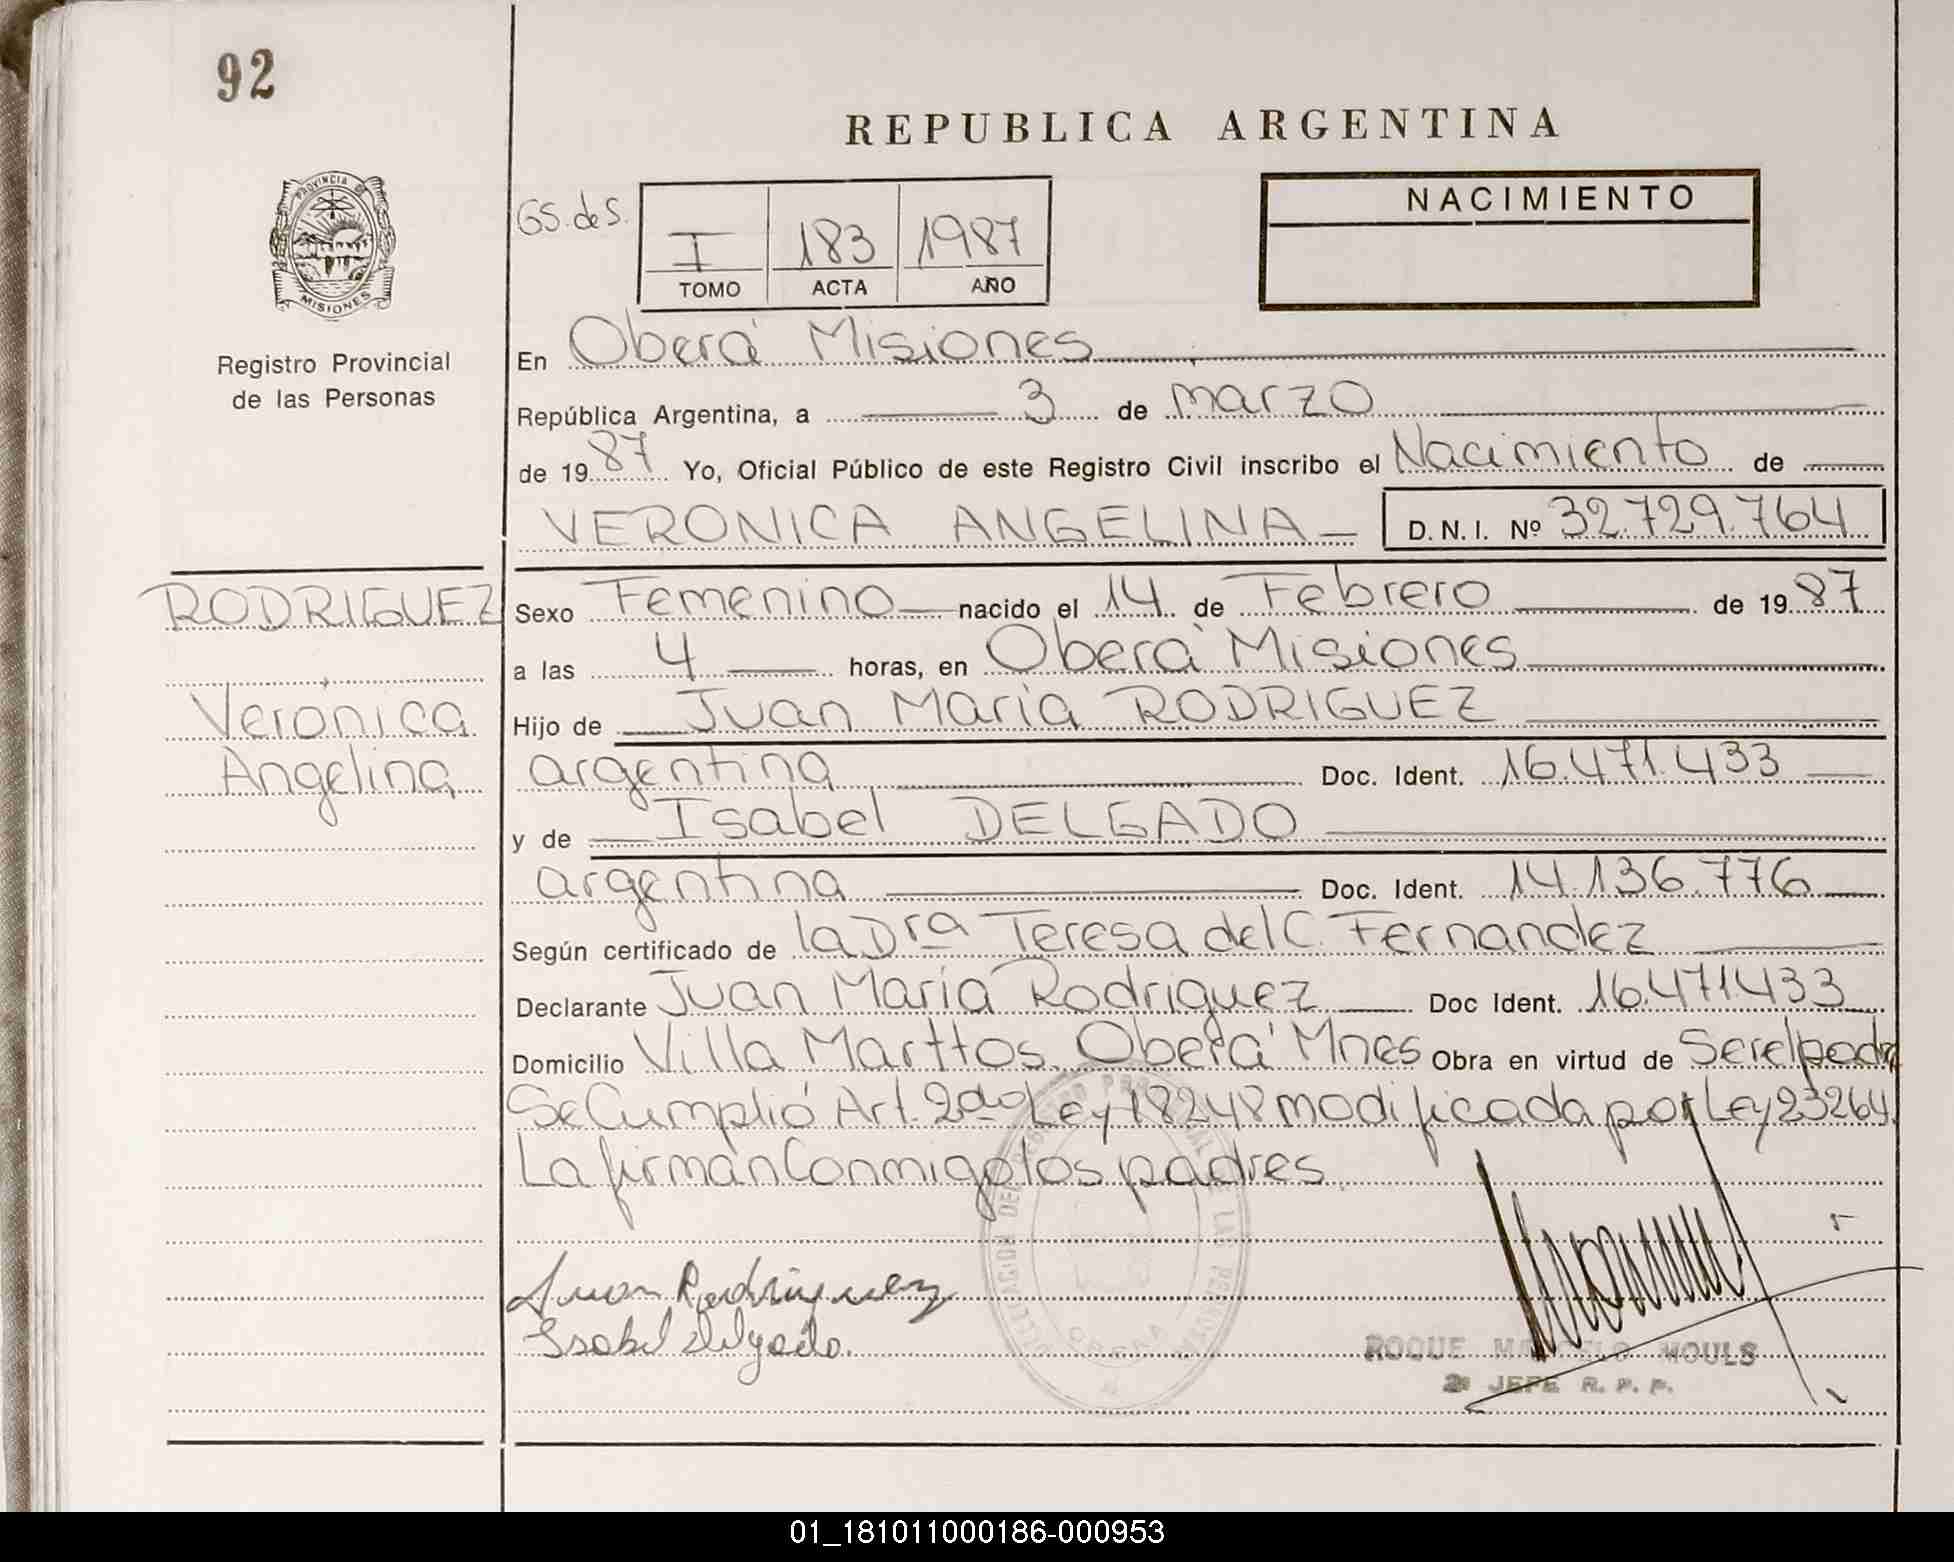 92
REPUBLICA ARGENTINA
PROVINCIA DE
MISIONES
Registro Provincial
de las Personas
GS. de S.
I 183 1987
TOMO ACTA AÑO
NACIMIENTO
En Oberá Misiones
República Argentina, a 3 de marzo
de 1987 Yo, Oficial Público de este Registro Civil inscribo el Nacimiento de
VERONICA ANGELINA D.N.I. Nº 32.729.764
RODRIGUEZ
Verónica
Angelina
Sexo Femenino nacido el 14 de Febrero de 1987
a las 4 horas, en Oberá Misiones
Hijo de Juan María RODRIGUEZ
argentina Doc. Ident. 16.471.433
y de Isabel DELGADO
argentina Doc. Ident. 14.136.776
Según certificado de la Dra Teresa del C. Fernandez
Declarante Juan María Rodriguez Doc Ident. 16.471.433
Domicilio Villa Marttos. Oberá Mnes Obra en virtud de Ser el padre
Se Cumplió Art. 2do Ley 18248 modificada por Ley 23264.
La firman Conmigo los padres.
Juan Rodriguez
Isabel delgado.
ROQUE MARCELO MOULS
2º JEFE R. P. P.
01_181011000186-000953